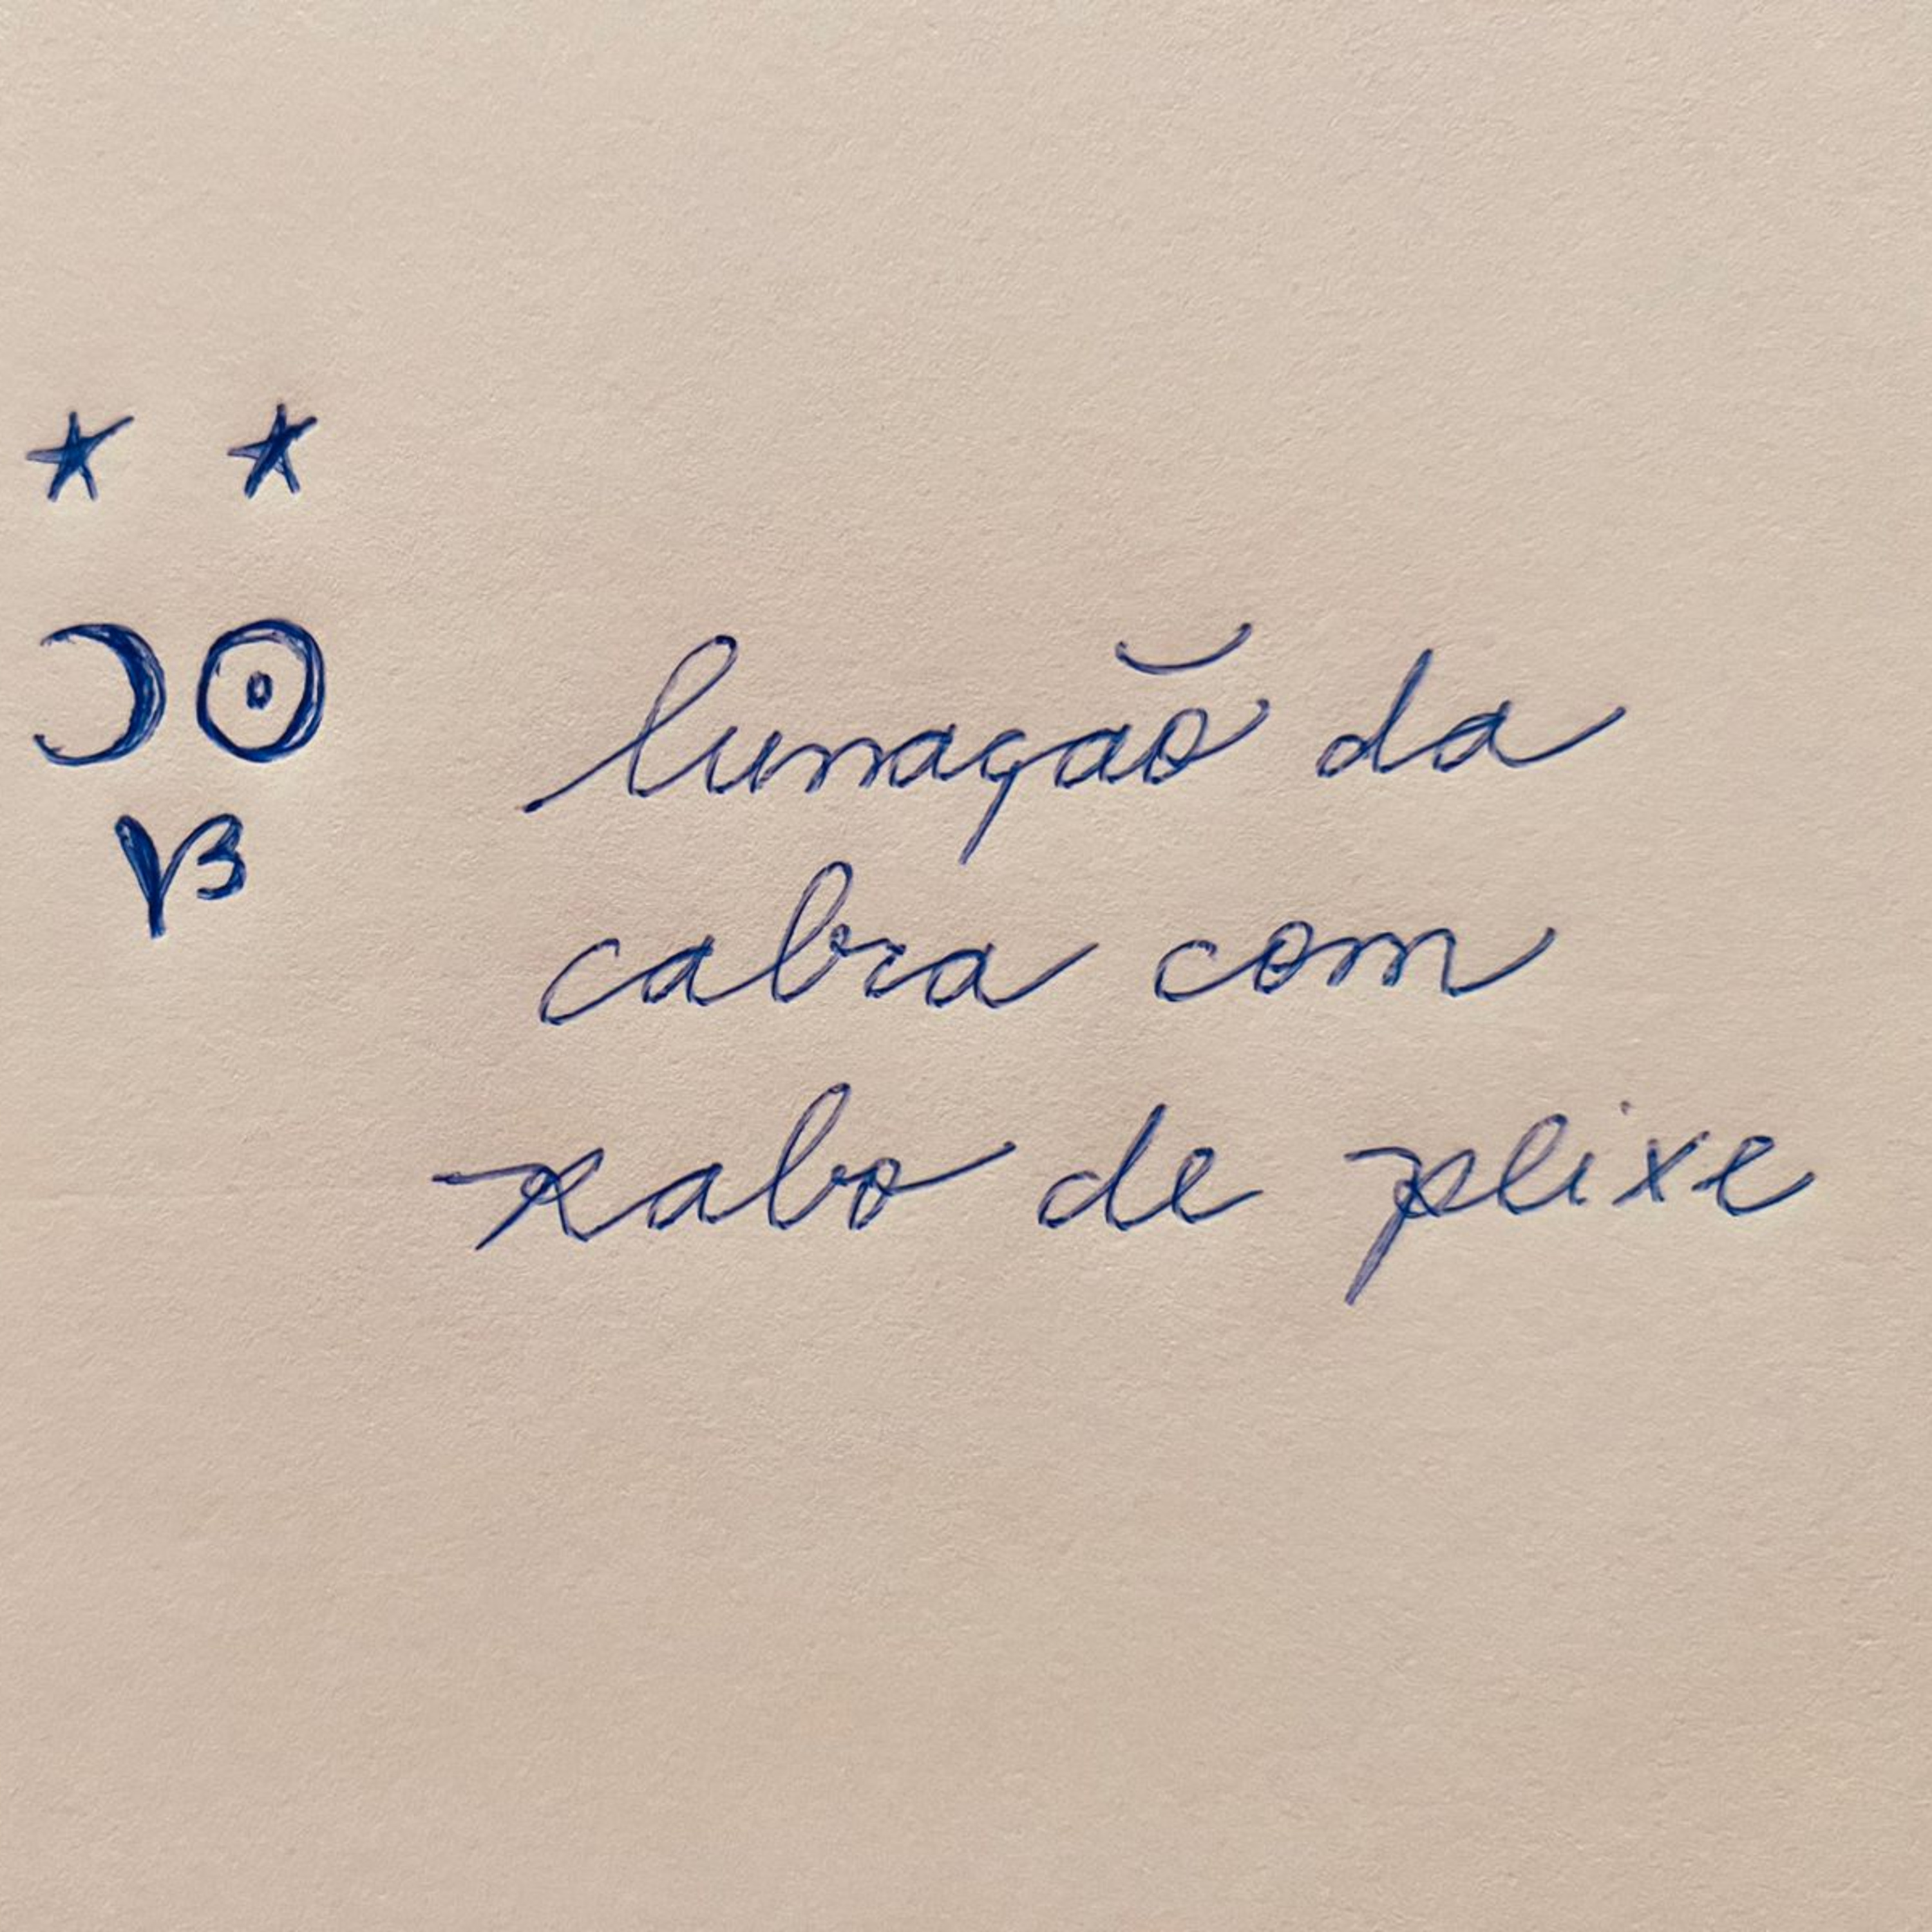 lunação da
cabra com
rabo de peixe